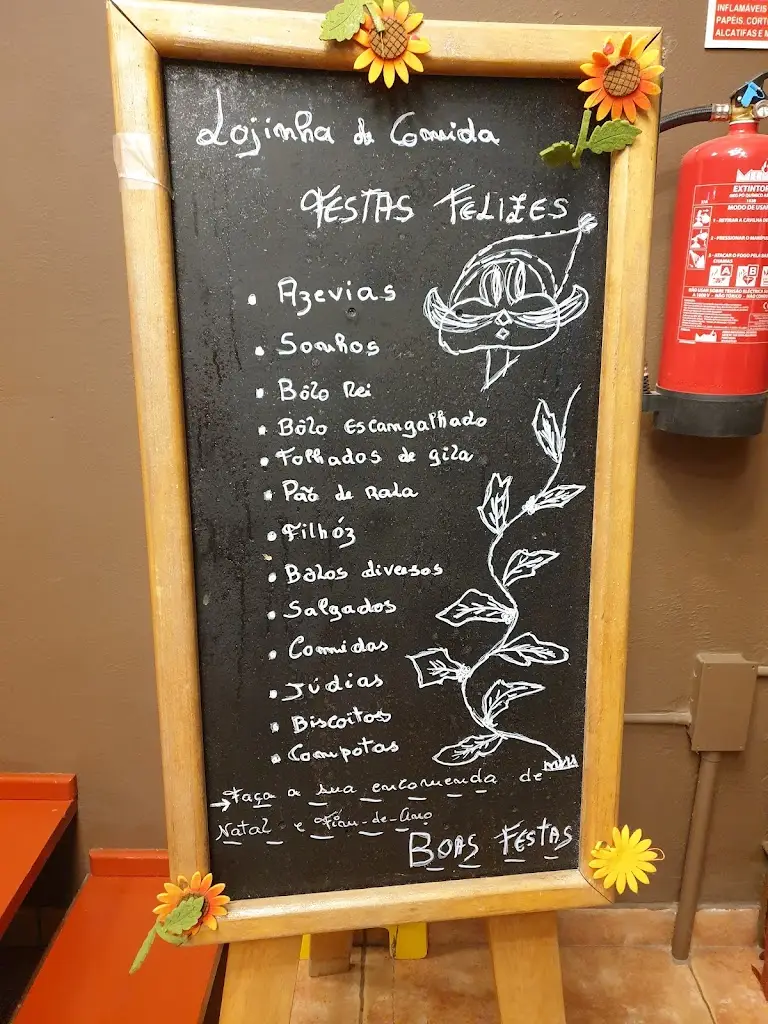 INFLAMÁVEIS
PAPÉIS, CORT
ALCATIFAS E M
Lojinha da Comida
FESTAS FELIZES
• Azevias
• Sonhos
• Bôlo Rei
• Bôlo Escangalhado
• Folhados de gila
• Pão de Rala
• Filhóz
• Bolos diversos
• Salgados
• Comidas
• Júdias
• Biscoitos
• Compotas
→ Faça a sua encomenda de
Natal e Fim-de-Ano
BOAS FESTAS
EXTINTOR
MODO DE USAR
A B